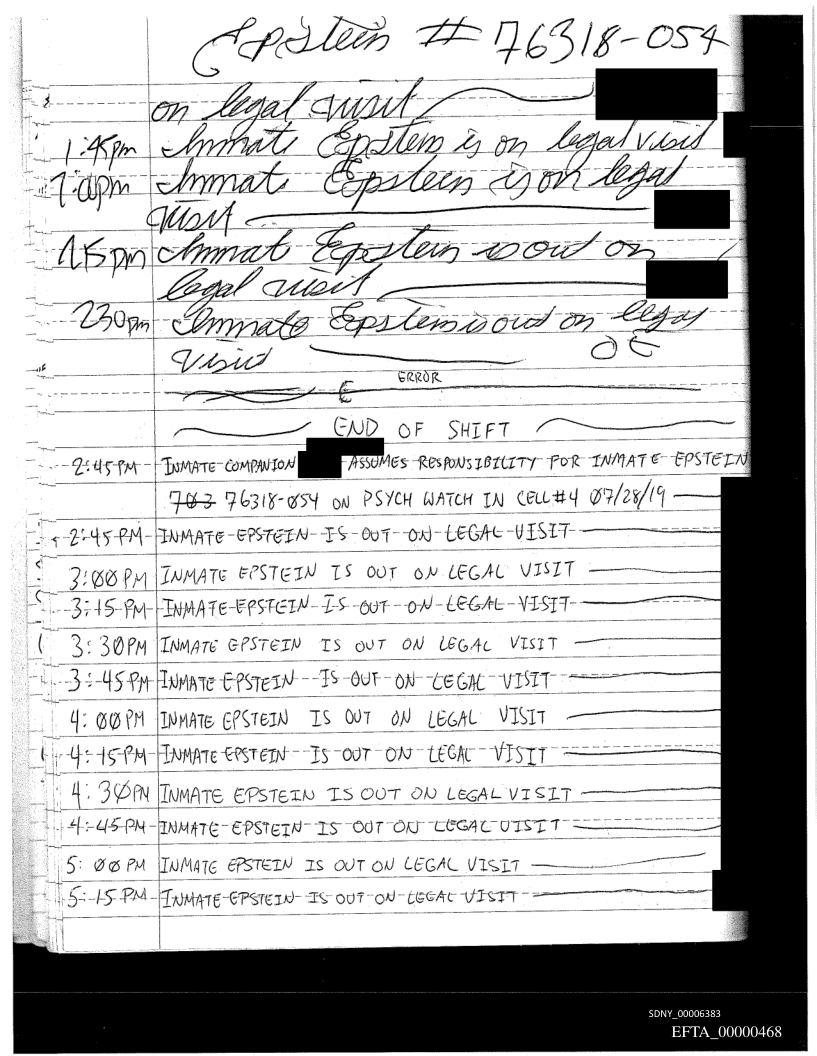 Epstein # 76318-054
on legal visit
1:45pm Inmat Epstein is on legal visit
Inmat Epstein is on legal
visit
Inmat Epstein is out on
legal visit
230pm Inmate Epstein is out on legal
visit OE
ERROR
E
END OF SHIFT
2:45PM INMATE COMPANION ASSUMES RESPONSIBILITY FOR INMATE EPSTEIN
703 76318-054 ON PSYCH WATCH IN CELL#4 07/28/19
2:45PM INMATE EPSTEIN IS OUT ON LEGAL VISIT
3:00PM INMATE EPSTEIN IS OUT ON LEGAL VISIT
3:15PM INMATE EPSTEIN IS OUT ON LEGAL VISIT
3:30PM INMATE EPSTEIN IS OUT ON LEGAL VISIT
3:45PM INMATE EPSTEIN IS OUT ON LEGAL VISIT
4:00PM INMATE EPSTEIN IS OUT ON LEGAL VISIT
4:15PM INMATE EPSTEIN IS OUT ON LEGAL VISIT
4:30PM INMATE EPSTEIN IS OUT ON LEGAL VISIT
4:45PM INMATE EPSTEIN IS OUT ON LEGAL VISIT
5:00PM INMATE EPSTEIN IS OUT ON LEGAL VISIT
5:15PM INMATE EPSTEIN IS OUT ON LEGAL VISIT
SDNY_00006383
EFTA_00000468